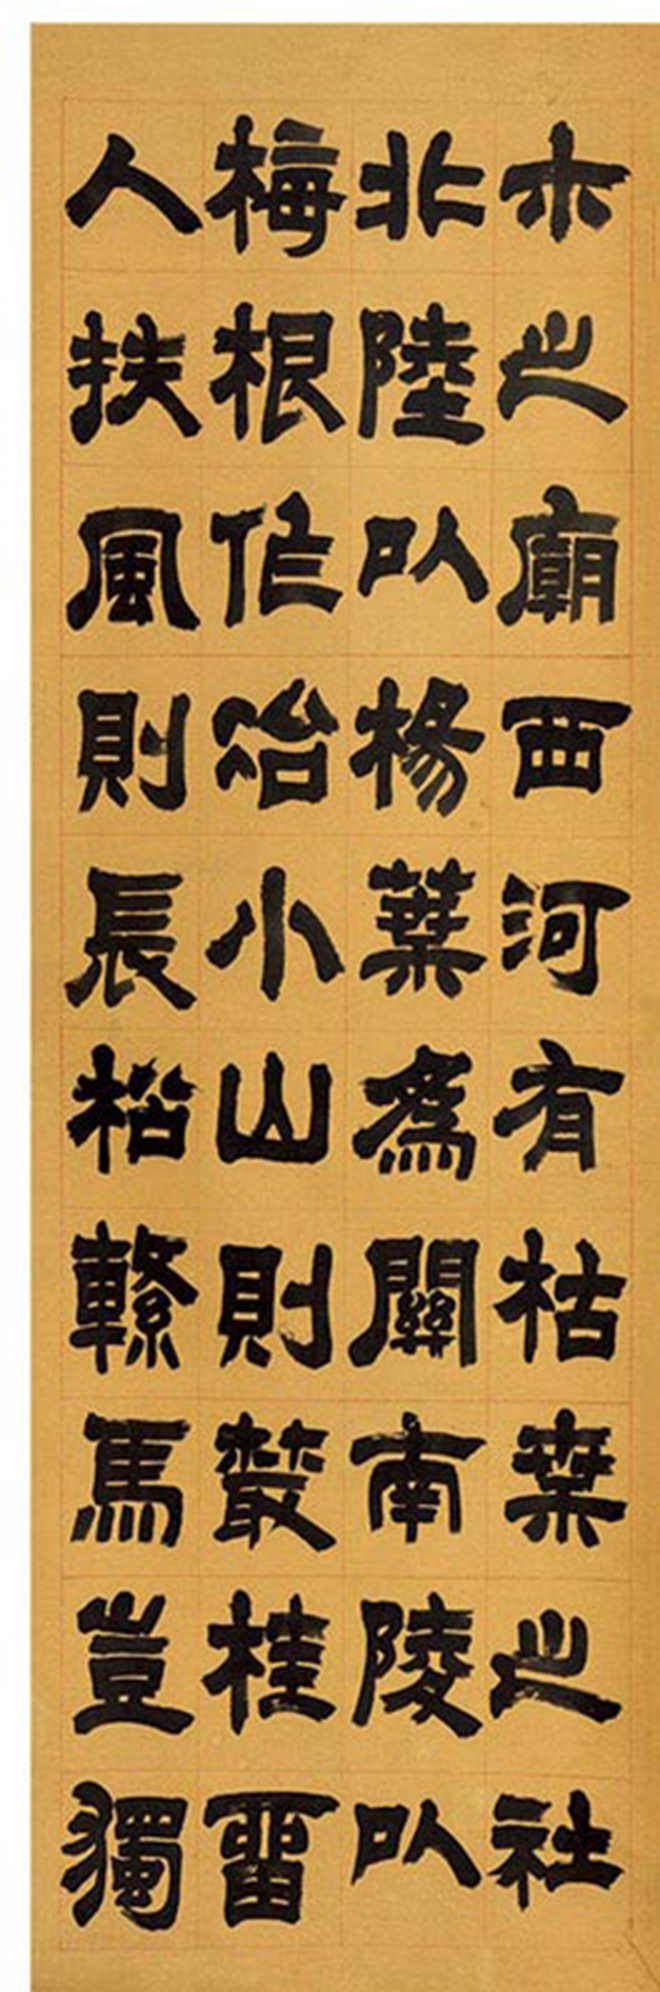 木之廟西河有枯桒之社
北陸㕥楊葉爲關南陵㕥
梅根作冶小山則叢桂畱
人扶風則長松繫馬豈獨